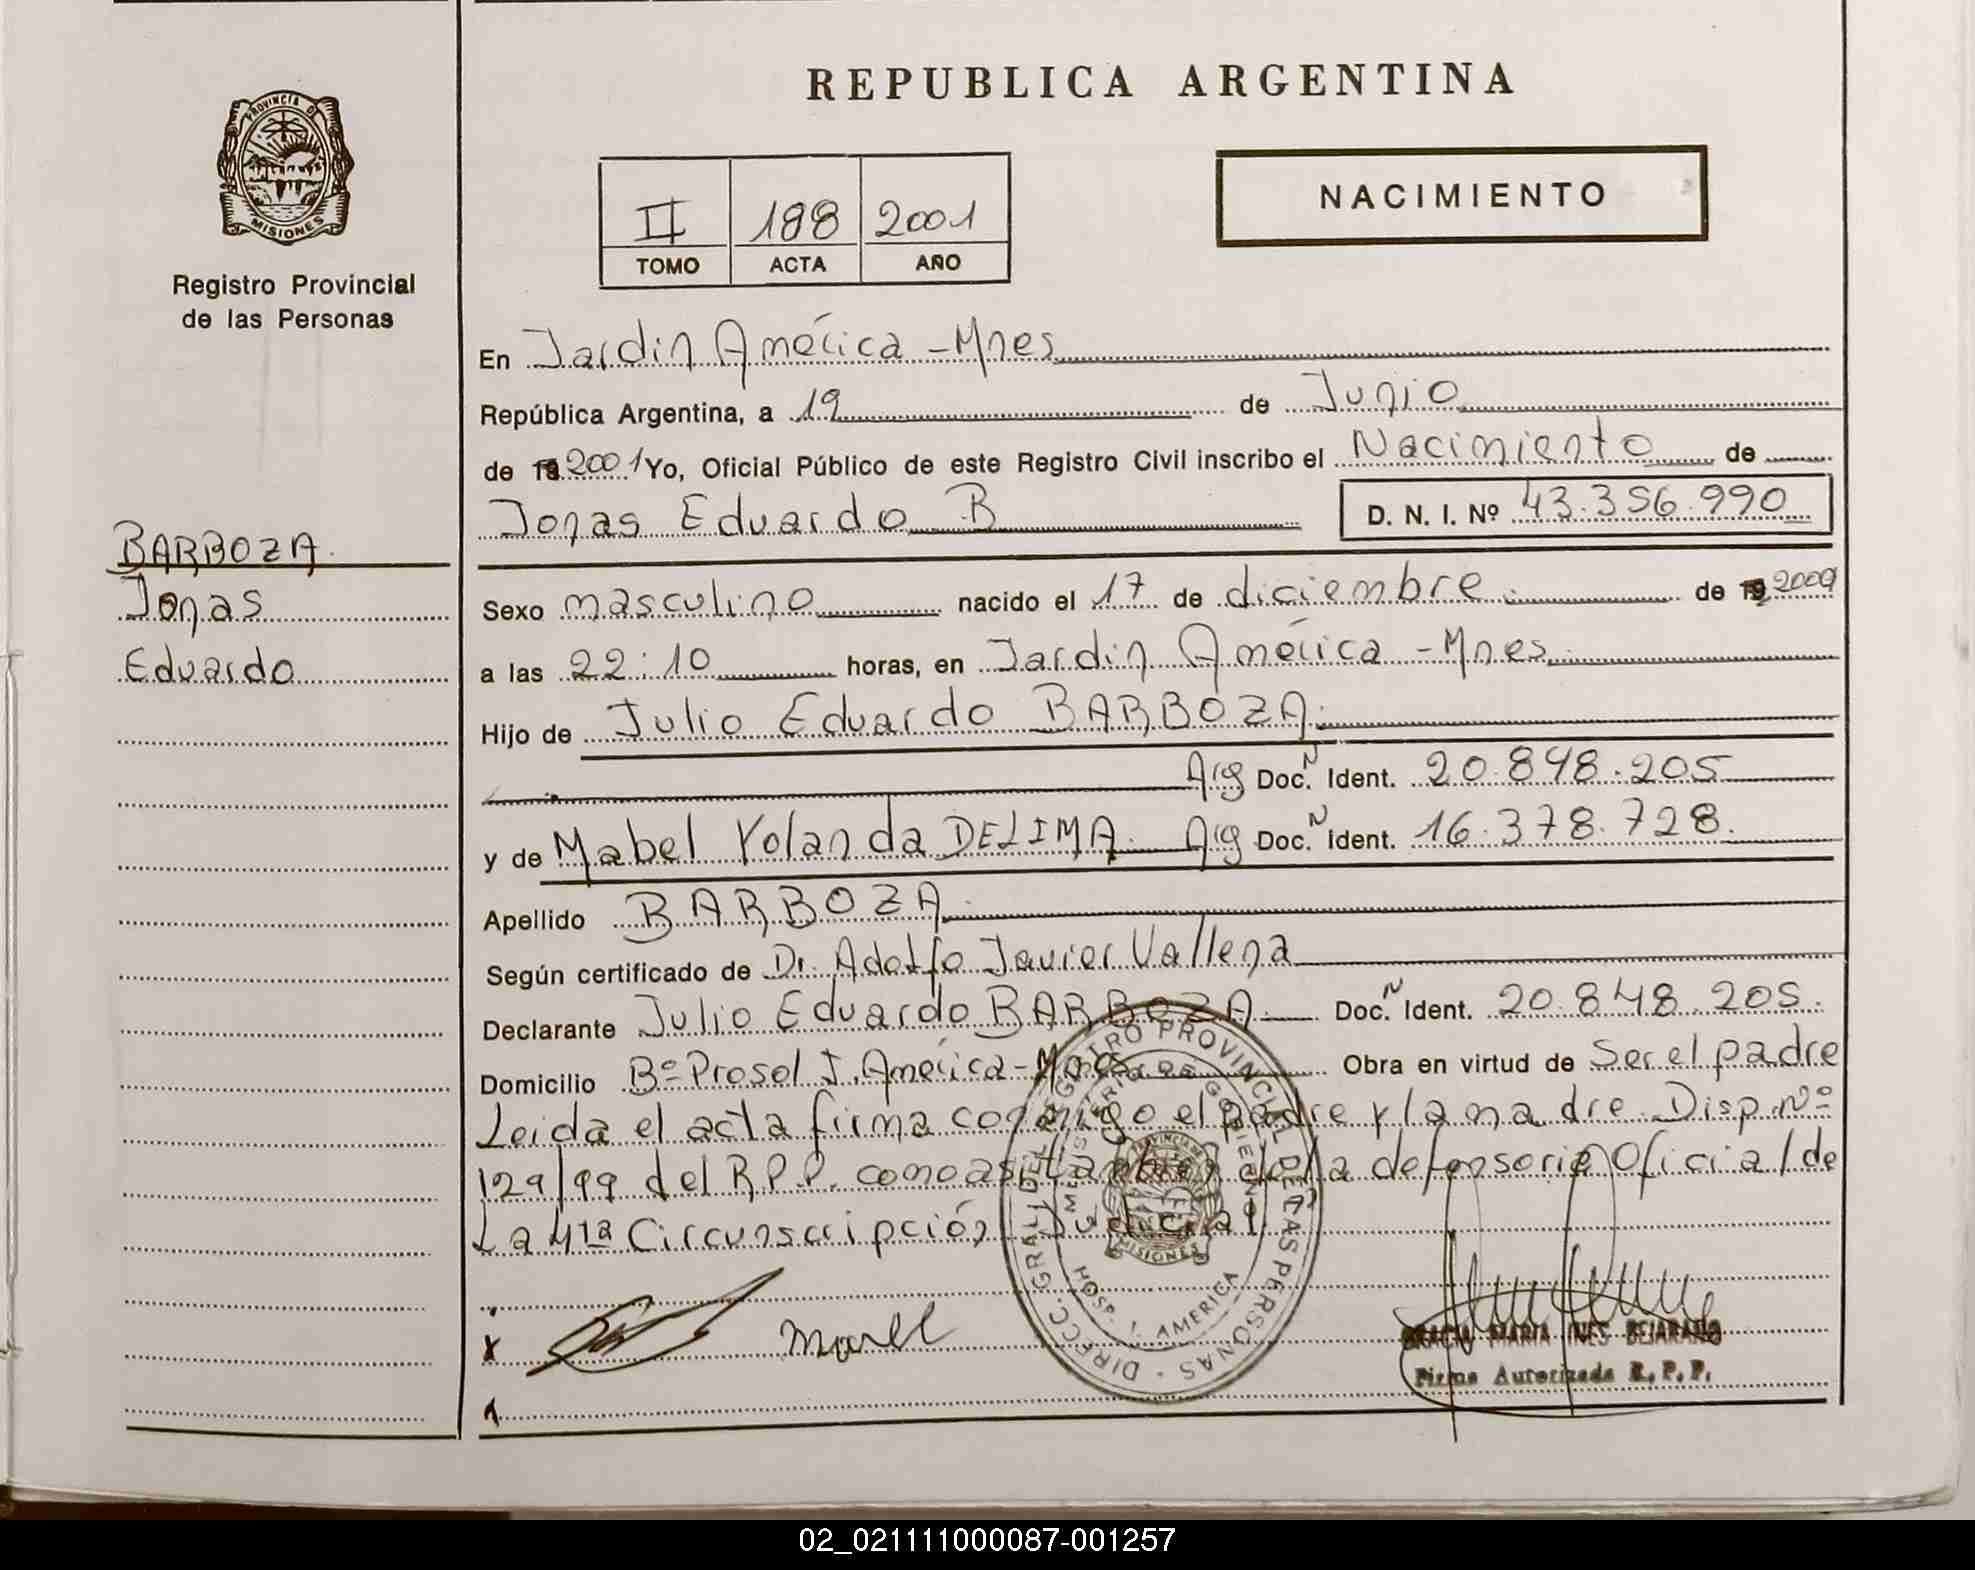 REPUBLICA ARGENTINA
PROVINCIA DE
MISIONES
Registro Provincial
de las Personas
II 188 2001
TOMO ACTA AÑO
NACIMIENTO
En Jardin América - Mnes
República Argentina, a 19 de Junio
de 19 2001 Yo, Oficial Público de este Registro Civil inscribo el Nacimiento de
Jonas Eduardo B D. N. I. Nº 43.356.990
BARBOZA
Jonas
Eduardo
Sexo masculino nacido el 17 de diciembre de 19 2000
a las 22:10 horas, en Jardin América - Mnes
Hijo de Julio Eduardo BARBOZA
Arg Doc. N Ident. 20.848.205
y de Mabel Yolanda DELIMA. Arg Doc. N Ident. 16.378.728.
Apellido BARBOZA
Según certificado de Dr. Adolfo Javier Vallena
Declarante Julio Eduardo BARBOZA Doc. N Ident. 20.848.205.
Domicilio Bº Prosol J. América - Mnes Obra en virtud de Ser el padre
Leida el acta firma conmigo el padre y la madre. Disp. Nº
129/99 del R.P.P. como asi tambien de la defensoria Oficial de
La 4ta Circunscripción Judicial
DIRECC. GRAL. DEL REGISTRO PROVINCIAL DE LAS PERSONAS
MINISTERIO DE GOBIERNO
HOSP. J. AMERICA
MISIONES
X
GRACIA MARIA INES BEJARANO
Firma Autorizada R. P. P.
02_021111000087-001257